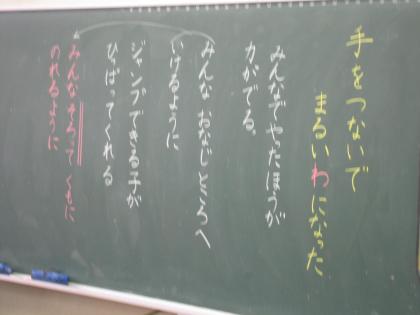 手をつないで
まるいわになった
みんなでやったほうが
力がでる。
みんな おなじところへ
いけるように
ジャンプできる子が
ひっぱってくれる
みんなそろって くもに
のれるように